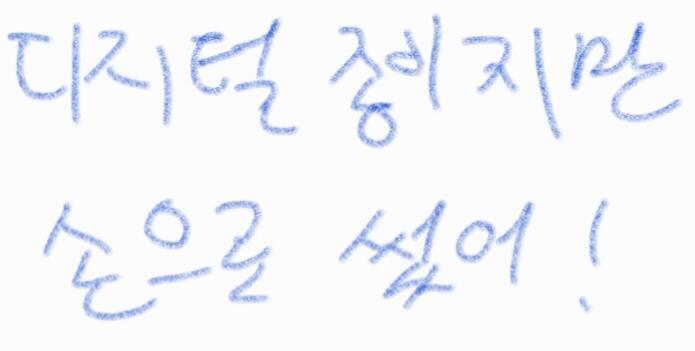 디지털 종이지만
손으로 썼어!